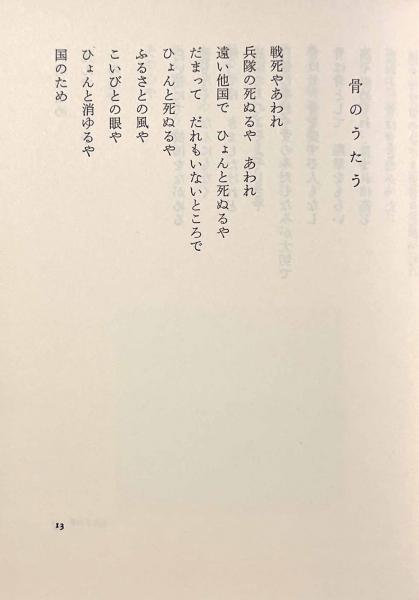 骨のうたう
戦死やあわれ
兵隊の死ぬるや　あわれ
遠い他国で　ひょんと死ぬるや
だまって　だれもいないところで
ひょんと死ぬるや
ふるさとの風や
こいびとの眼や
ひょんと消ゆるや
国のため
13